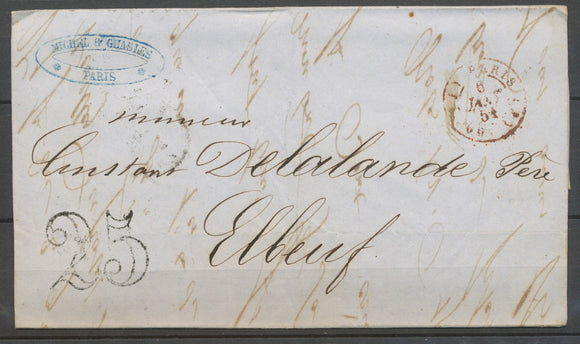 MICHEL & CHASLES
PARIS
PARIS
6
JANV
54
monsieur
Constant Delalande Père
Elbeuf
25